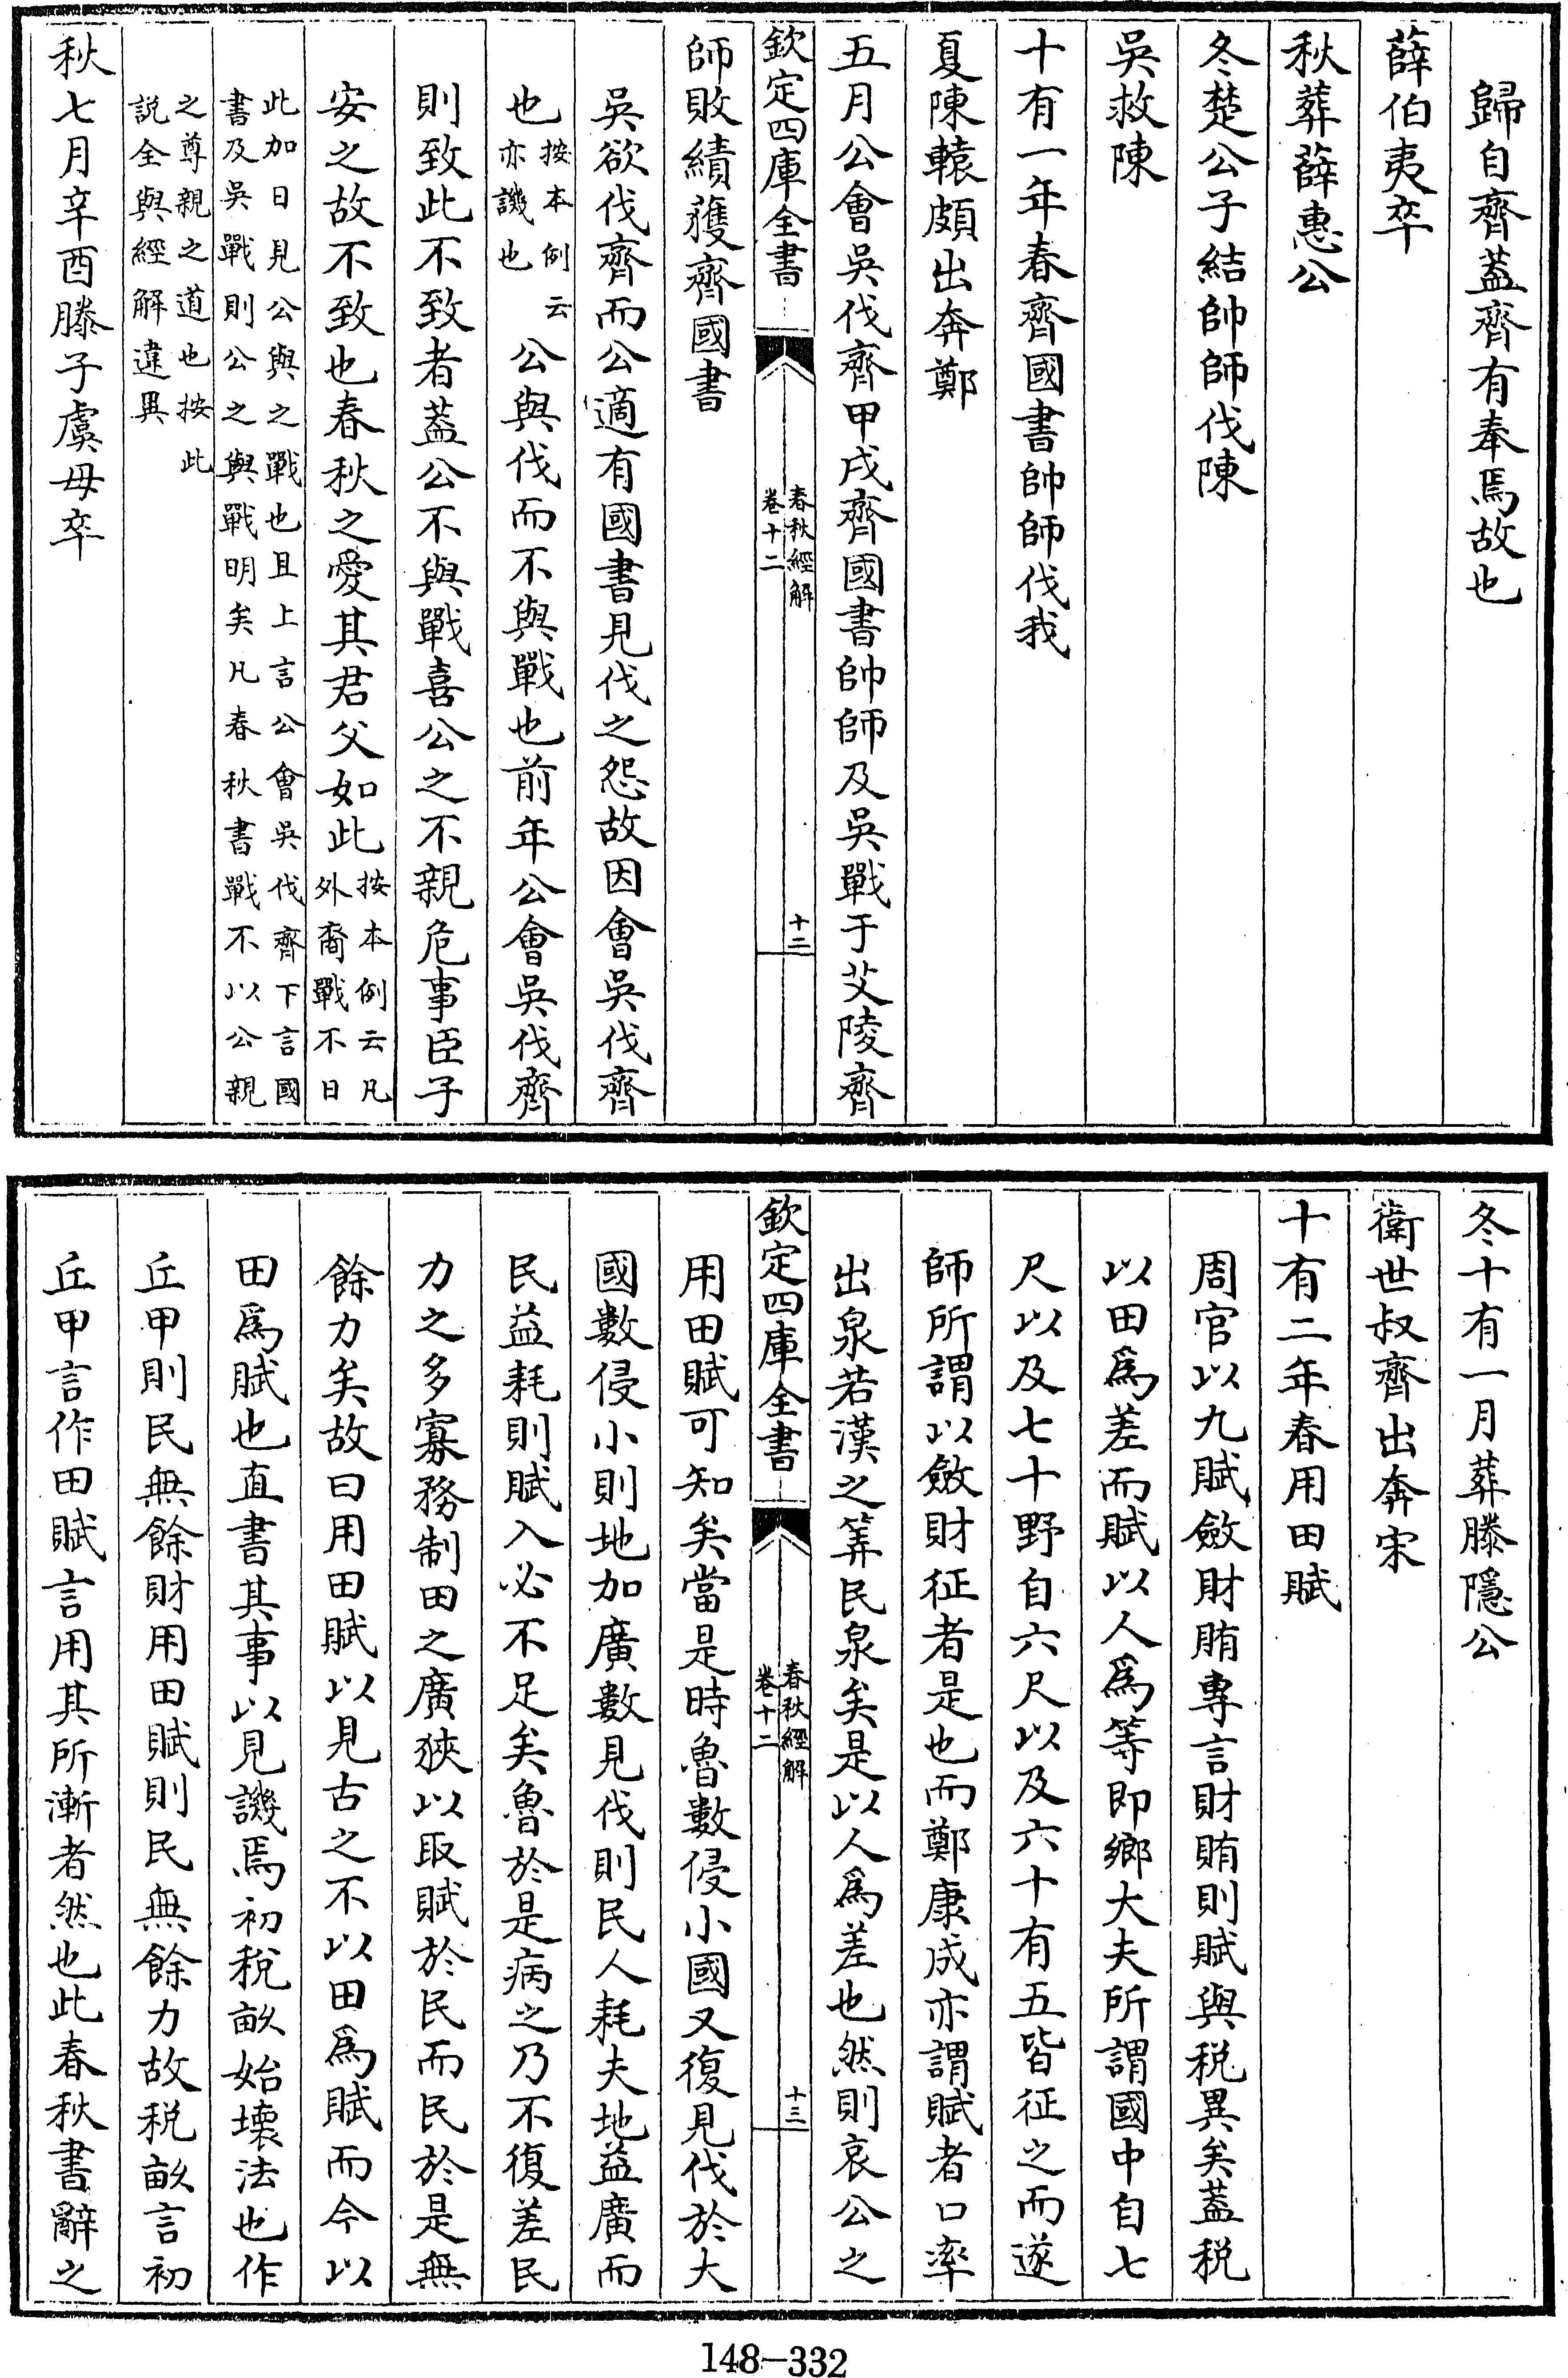 歸自齊蓋齊有奉焉故也
薛伯夷卒
秋葬薛惠公
冬楚公子結帥師伐陳
吳救陳
十有一年春齊國書帥師伐我
夏陳轅頗出奔鄭
五月公會吳伐齊甲戌齊國書帥師及吳戰于艾陵齊
欽定四庫全書
春秋經解
卷十二
十二
師敗績獲齊國書
吳欲伐齊而公適有國書見伐之怨故因會吳伐齊
也按本例云亦譏也公與伐而不與戰也前年公會吳伐齊
則致此不致者蓋公不與戰喜公之不親危事臣子
安之故不致也春秋之愛其君父如此按本例云凡外裔戰不日
此加日見公與之戰也且上言公會吳伐齊下言國
書及吳戰則公之與戰明矣凡春秋書戰不以公親
之尊親之道也按此
説全與經解違異
秋七月辛酉滕子虞毋卒
冬十有一月葬滕隱公
衛世叔齊出奔宋
十有二年春用田賦
周官以九賦斂財賄專言財賄則賦與税異矣蓋税
以田爲差而賦以人爲等即鄉大夫所謂國中自七
尺以及七十野自六尺以及六十有五皆征之而遂
師所謂以斂財征者是也而鄭康成亦謂賦者口率
出泉若漢之筭民泉矣是以人爲差也然則哀公之
欽定四庫全書
春秋經解
卷十二
十三
用田賦可知矣當是時魯數侵小國又復見伐於大
國數侵小則地加廣數見伐則民人耗夫地益廣而
民益耗則賦入必不足矣魯於是病之乃不復差民
力之多寡務制田之廣狹以取賦於民而民於是無
餘力矣故曰用田賦以見古之不以田爲賦而今以
田爲賦也直書其事以見譏焉初税畝始壞法也作
丘甲則民無餘財用田賦則民無餘力故税畝言初
丘甲言作田賦言用其所漸者然也此春秋書辭之
148-332